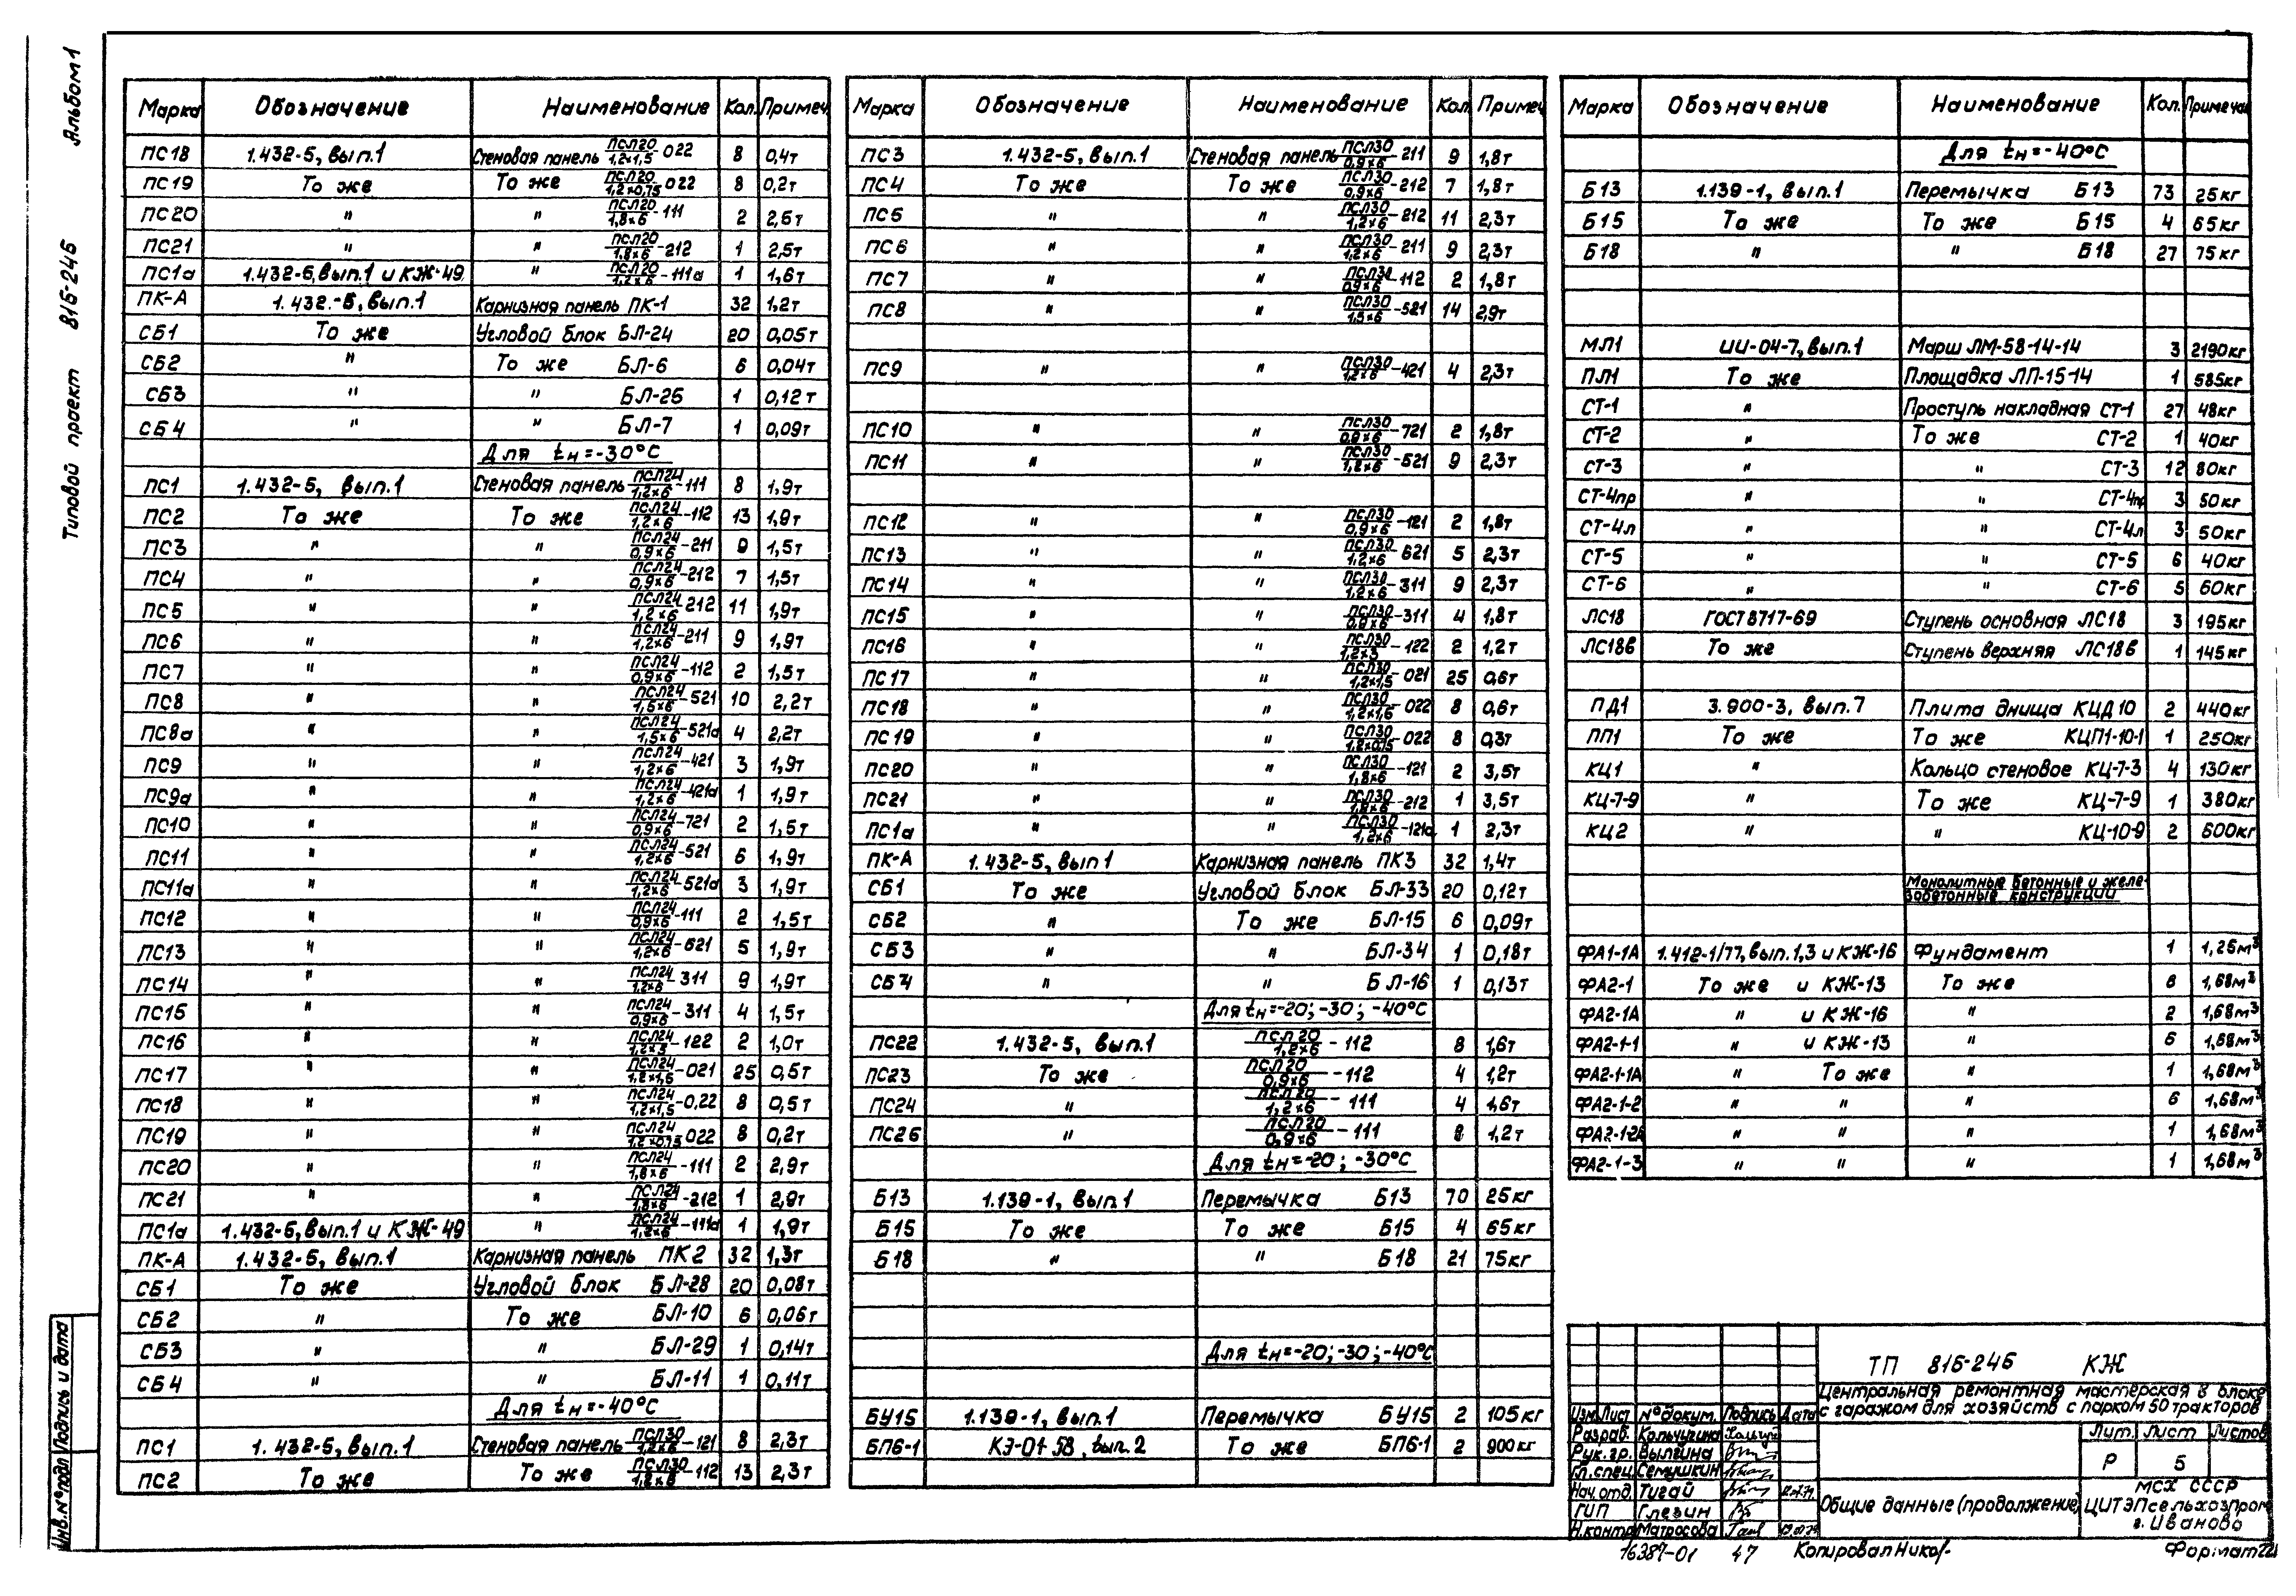 Альбом 1
Типовой проект 816-246
Марка Обозначение Наименование Кол. Примеч.
ПС18 1.432-5, вып.1 Стеновая панель ПСЛ20/1,2×1,5-022 8 0,4т
ПС19 То же То же ПСЛ20/1,2×0,75-022 8 0,2т
ПС20 " " ПСЛ20/1,8×6-111 2 2,6т
ПС21 " " ПСЛ20/1,8×6-212 1 2,5т
ПС1а 1.432-5, вып.1 и КЖ-49 " ПСЛ20/1,2×6-111а 1 1,6т
ПК-А 1.432.-5, вып.1 Карнизная панель ПК-1 32 1,2т
СБ1 То же Угловой блок БЛ-24 20 0,05т
СБ2 " То же БЛ-6 6 0,04т
СБ3 " " БЛ-25 1 0,12т
СБ4 " " БЛ-7 1 0,09т
Для tн=-30°С
ПС1 1.432-5, вып.1 Стеновая панель ПСЛ24/1,2×6-111 8 1,9т
ПС2 То же То же ПСЛ24/1,2×6-112 13 1,9т
ПС3 " " ПСЛ24/0,9×6-211 9 1,5т
ПС4 " " ПСЛ24/0,9×6-212 7 1,5т
ПС5 " " ПСЛ24/1,2×6-212 11 1,9т
ПС6 " " ПСЛ24/1,2×6-211 9 1,9т
ПС7 " " ПСЛ24/0,9×6-112 2 1,5т
ПС8 " " ПСЛ24/1,5×6-521 10 2,2т
ПС8а " " ПСЛ24/1,5×6-521а 4 2,2т
ПС9 " " ПСЛ24/1,2×6-421 3 1,9т
ПС9а " " ПСЛ24/1,2×6-421а 1 1,9т
ПС10 " " ПСЛ24/0,9×6-721 2 1,5т
ПС11 " " ПСЛ24/1,2×6-521 6 1,9т
ПС11а " " ПСЛ24/1,2×6-521а 3 1,9т
ПС12 " " ПСЛ24/0,9×6-111 2 1,5т
ПС13 " " ПСЛ24/1,2×6-621 5 1,9т
ПС14 " " ПСЛ24/1,2×6-311 9 1,9т
ПС15 " " ПСЛ24/0,9×6-311 4 1,5т
ПС16 " " ПСЛ24/1,2×3-122 2 1,0т
ПС17 " " ПСЛ24/1,2×1,5-021 25 0,5т
ПС18 " " ПСЛ24/1,2×1,5-0,22 8 0,5т
ПС19 " " ПСЛ24/1,2×0,75 022 8 0,2т
ПС20 " " ПСЛ24/1,8×6-111 2 2,9т
ПС21 " " ПСЛ24/1,8×6-212 1 2,9т
ПС1а 1.432-5, вып.1 и КЖ-49 " ПСЛ24/1,2×6-111а 1 1,9т
ПК-А 1.432-5, вып.1 Карнизная панель ПК2 32 1,3т
СБ1 То же Угловой блок БЛ-28 20 0,08т
СБ2 " То же БЛ-10 6 0,06т
СБ3 " " БЛ-29 1 0,14т
СБ4 " " БЛ-11 1 0,11т
Для tн=-40°С
ПС1 1.432-5, вып.1 Стеновая панель ПСЛ30/1,2×6-121 8 2,3т
ПС2 То же То же ПСЛ30/1,2×6-112 13 2,3т
Марка Обозначение Наименование Кол Примеч
ПС3 1.432-5, вып.1 Стеновая панель ПСЛ30/0,9×6-211 9 1,8т
ПС4 То же То же ПСЛ30/0,9×6-212 7 1,8т
ПС5 " " ПСЛ30/1,2×6-212 11 2,3т
ПС6 " " ПСЛ30/1,2×6-211 9 2,3т
ПС7 " " ПСЛ30/0,9×6-112 2 1,8т
ПС8 " " ПСЛ30/1,5×6-521 14 2,9т
ПС9 " " ПСЛ30/1,2×6-421 4 2,3т
ПС10 " " ПСЛ30/0,9×6-721 2 1,8т
ПС11 " " ПСЛ30/1,2×6-521 9 2,3т
ПС12 " " ПСЛ30/0,9×6-121 2 1,8т
ПС13 " " ПСЛ30/1,2×6 621 5 2,3т
ПС14 " " ПСЛ30/1,2×6-311 9 2,3т
ПС15 " " ПСЛ30/0,9×6-311 4 1,8т
ПС16 " " ПСЛ30/1,2×3-122 2 1,2т
ПС17 " " ПСЛ30/1,2×1,5-021 25 0,6т
ПС18 " " ПСЛ30/1,2×1,5-022 8 0,6т
ПС19 " " ПСЛ30/1,2×0,75-022 8 0,3т
ПС20 " " ПСЛ30/1,8×6-121 2 3,5т
ПС21 " " ПСЛ30/1,8×6-212 1 3,5т
ПС1а " " ПСЛ30/1,2×6-121а 1 2,3т
ПК-А 1.432-5, вып1 Карнизная панель ПК3 32 1,4т
СБ1 То же Угловой блок БЛ-33 20 0,12т
СБ2 " То же БЛ-15 6 0,09т
СБ3 " " БЛ-34 1 0,18т
СБ4 " " БЛ-16 1 0,13т
Для tн=-20; -30; -40°С
ПС22 1.432-5, вып.1 ПСЛ20/1,2×6-112 8 1,6т
ПС23 То же ПСЛ20/0,9×6-112 4 1,2т
ПС24 " ПСЛ20/1,2×6-111 4 1,6т
ПС25 " ПСЛ20/0,9×6-111 8 1,2т
Для tн=-20; -30°С
Б13 1.139-1, вып.1 Перемычка Б13 70 25кг
Б15 То же То же Б15 4 65кг
Б18 " " Б18 21 75кг
Для tн=-20; -30; -40°С
БУ15 1.139-1, вып.1 Перемычка БУ15 2 105кг
БП6-1 КЭ-01-58, вып.2 То же БП6-1 2 900кг
Марка Обозначение Наименование Кол. Примечан
Для tн=-40°С
Б13 1.139-1, вып.1 Перемычка Б13 73 25кг
Б15 То же То же Б15 4 65кг
Б18 " " Б18 27 75кг
МЛ1 ИИ-04-7, вып.1 Марш ЛМ-58-14-14 3 2190кг
ПЛ1 То же Площадка ЛП-15-14 1 585кг
СТ-1 " Проступь накладная СТ-1 27 48кг
СТ-2 " То же СТ-2 1 40кг
СТ-3 " " СТ-3 12 80кг
СТ-4пр " " СТ-4пр 3 50кг
СТ-4л " " СТ-4л 3 50кг
СТ-5 " " СТ-5 6 40кг
СТ-6 " " СТ-6 5 60кг
ЛС18 ГОСТ 8717-69 Ступень основная ЛС18 3 195кг
ЛС18в То же Ступень верхняя ЛС18в 1 145кг
ПД1 3.900-3, вып.7 Плита днища КЦД10 2 440кг
ПП1 То же То же КЦП1-10-1 1 250кг
КЦ1 " Кольцо стеновое КЦ-7-3 4 130кг
КЦ-7-9 " То же КЦ-7-9 1 380кг
КЦ2 " " КЦ-10-9 2 600кг
Монолитные бетонные и желе-
зобетонные конструкции
ФА1-1А 1.412-1/77, вып.1,3 и КЖ-16 Фундамент 1 1,25м³
ФА2-1 То же и КЖ-13 То же 8 1,68м³
ФА2-1А " и КЖ-16 " 2 1,68м³
ФА2-1-1 " и КЖ-13 " 6 1,68м³
ФА2-1-1А " То же " 1 1,68м³
ФА2-1-2 " " " 6 1,68м³
ФА2-1-2А " " " 1 1,68м³
ФА2-1-3 " " " 1 1,68м³
ТП 816-246 КЖ
Центральная ремонтная мастерская в блоке
с гаражом для хозяйств с парком 50 тракторов
Изм. Лист № докум. Подпись Дата
Разраб. Кольчугина
Рук.гр. Вылгина
Гл.спец. Семушкин
Нач.отд. Тигай
ГИП Глезин
Н.контр Матросова
Лит. Лист Листов
Р 5
Общие данные (продолжение)
МСХ СССР
ЦИТЭПсельхозпром
г. Иваново
16387-01 47 Копировал Формат 22
Инв.№ подл Подпись и дата